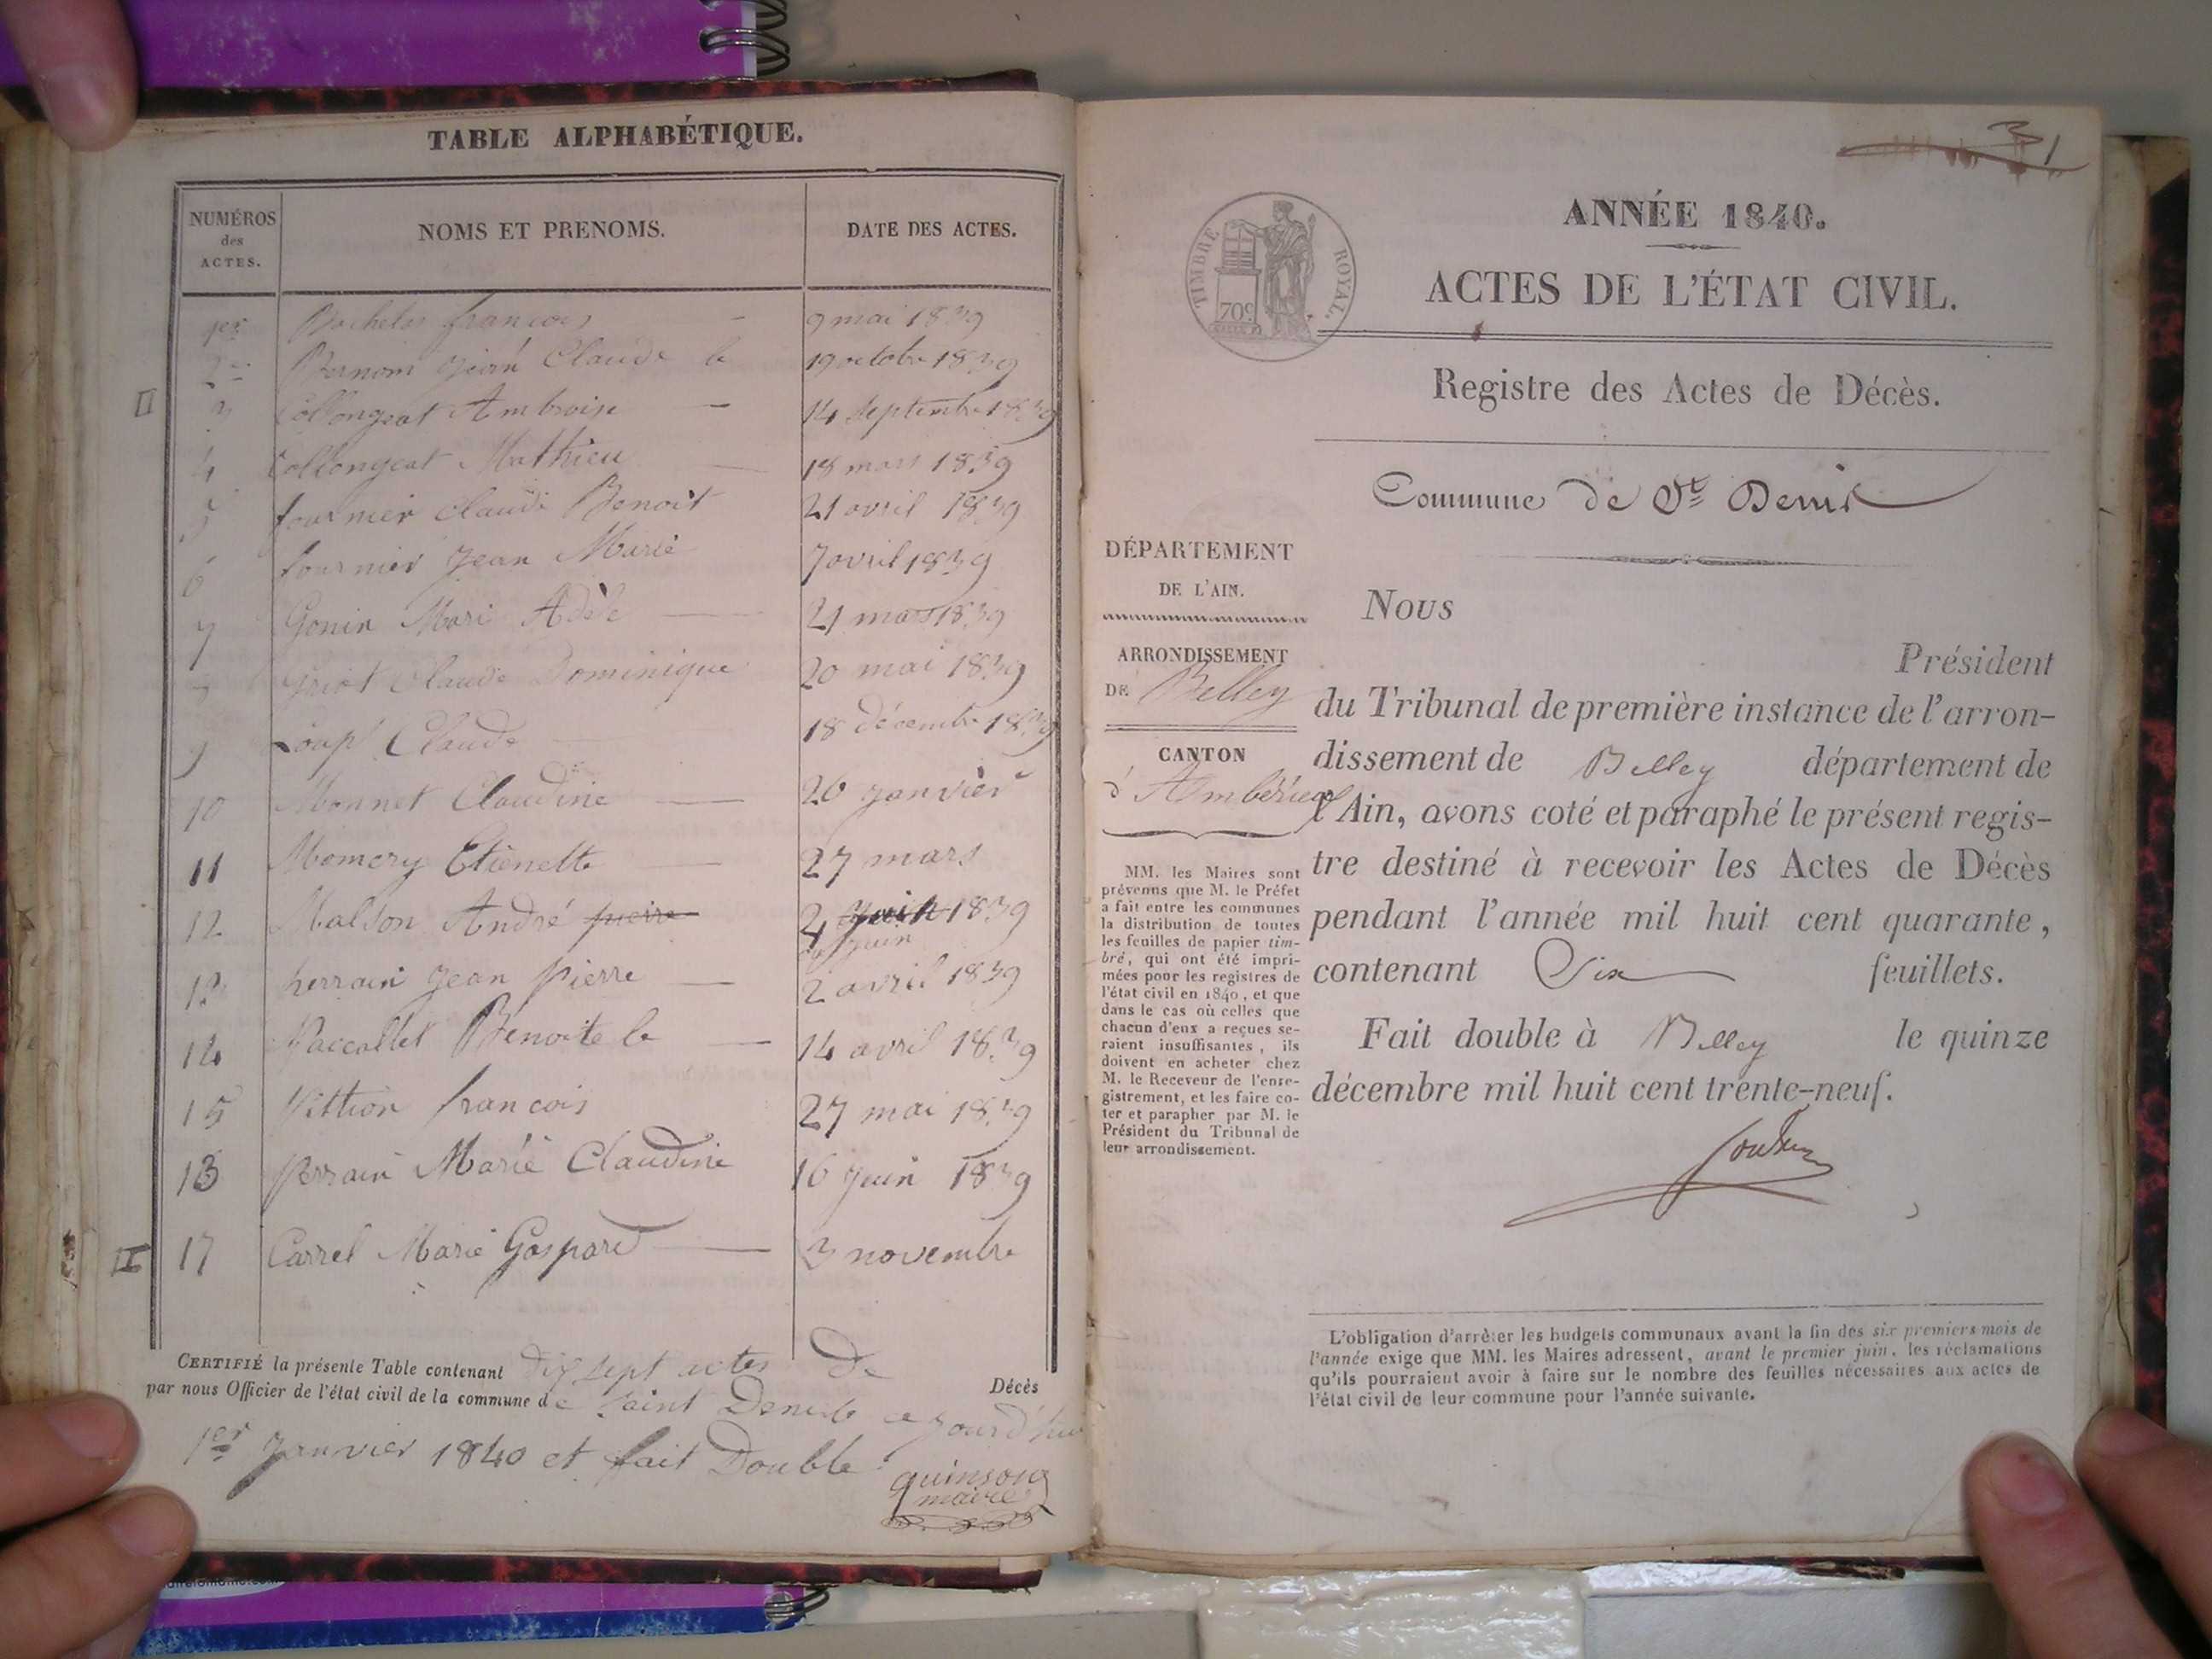 TABLE ALPHABÉTIQUE.
NUMÉROS des ACTES. NOMS ET PRENOMS. DATE DES ACTES.
1er françois - 9 mai 1839
2e Claude le 19 octobre 1839
3 Collongeat Ambroise — 14 septembre 1839
4 Collongeat Mathieu — 18 mars 1839
5 fournier Claude Benoit 21 avril 1839
6 fournier Jean Marie 7 avril 1839
7 Gonin Mari Adèle — 21 mars 1839
Claude Dominique 20 mai 1839
9 Loup Claude — 18 décembre 1839
10 Monnet Claudine — 26 janvier
11 Momery Etiènette — 27 mars
12 André pierre 4 juin 1839
de juin
13 perrain Jean pierre — 2 avril 1839
14 Paccallet Benoite le — 14 avril 1839
15 Pittion francois 27 mai 1839
16 perrain Marie Claudine 16 juin 1839
17 Carrel Marie Gaspard — 3 novembre
CERTIFIÉ la présente Table contenant dix sept actes de Décès
par nous Officier de l'état civil de la commune de Saint Denis le ce jourd'hui
1er janvier 1840 et fait Double
quinson
maire
31
TIMBRE ROYAL.
70c
ANNÉE 1840.
ACTES DE L'ÉTAT CIVIL.
Registre des Actes de Décès.
Commune de St Denis
DÉPARTEMENT
DE L'AIN.
ARRONDISSEMENT
DE Belley
CANTON
d'Ambérieux
MM. les Maires sont
prévenus que M. le Préfet
a fait entre les communes
la distribution de toutes
les feuilles de papier tim-
bré, qui ont été impri-
mées pour les registres de
l'état civil en 1840, et que
dans le cas où celles que
chacun d'eux a reçues se-
raient insuffisantes, ils
doivent en acheter chez
M. le Receveur de l'enre-
gistrement, et les faire co-
ter et parapher par M. le
Président du Tribunal de
leur arrondissement.
Nous
Président
du Tribunal de première instance de l'arron-
dissement de Belley département de
l'Ain, avons coté et paraphé le présent regis-
tre destiné à recevoir les Actes de Décès
pendant l'année mil huit cent quarante,
contenant Six feuillets.
Fait double à Belley le quinze
décembre mil huit cent trente-neuf.
L'obligation d'arrêter les budgets communaux avant la fin des six premiers mois de
l'année exige que MM. les Maires adressent, avant le premier juin, les réclamations
qu'ils pourraient avoir à faire sur le nombre des feuilles nécessaires aux actes de
l'état civil de leur commune pour l'année suivante.